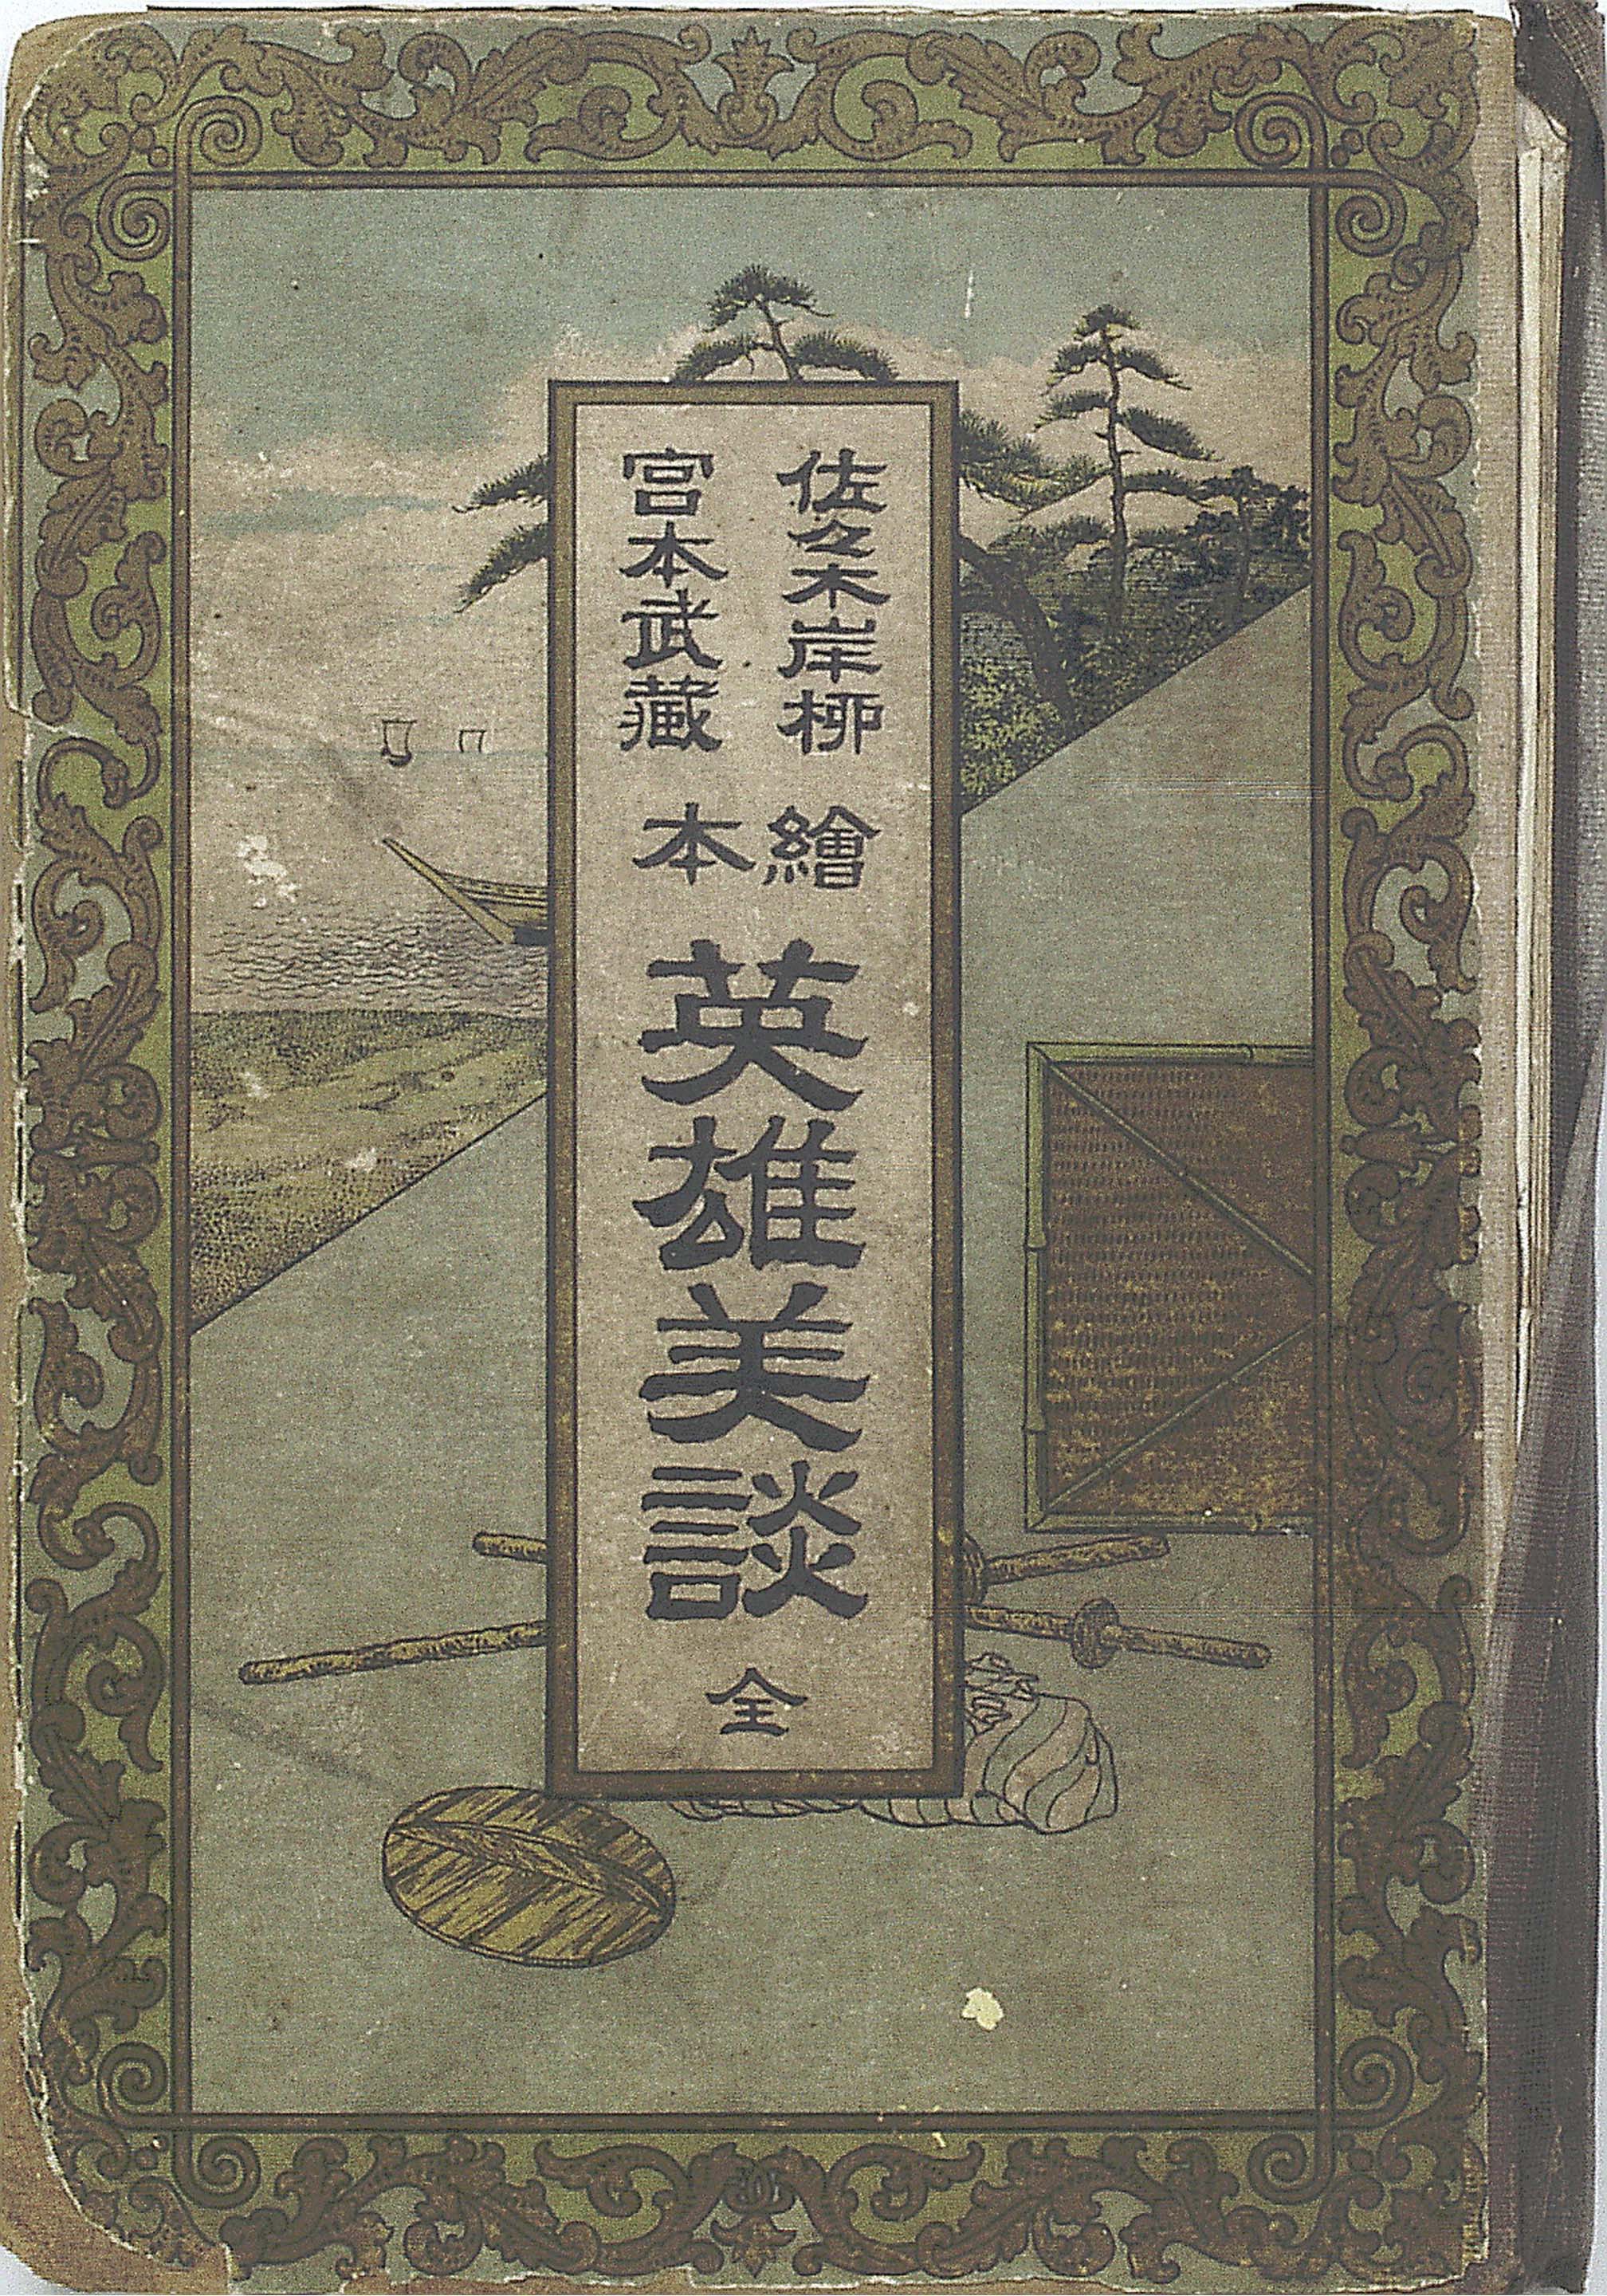 佐々木岸柳
宮本武藏
繪本
英雄美談
全